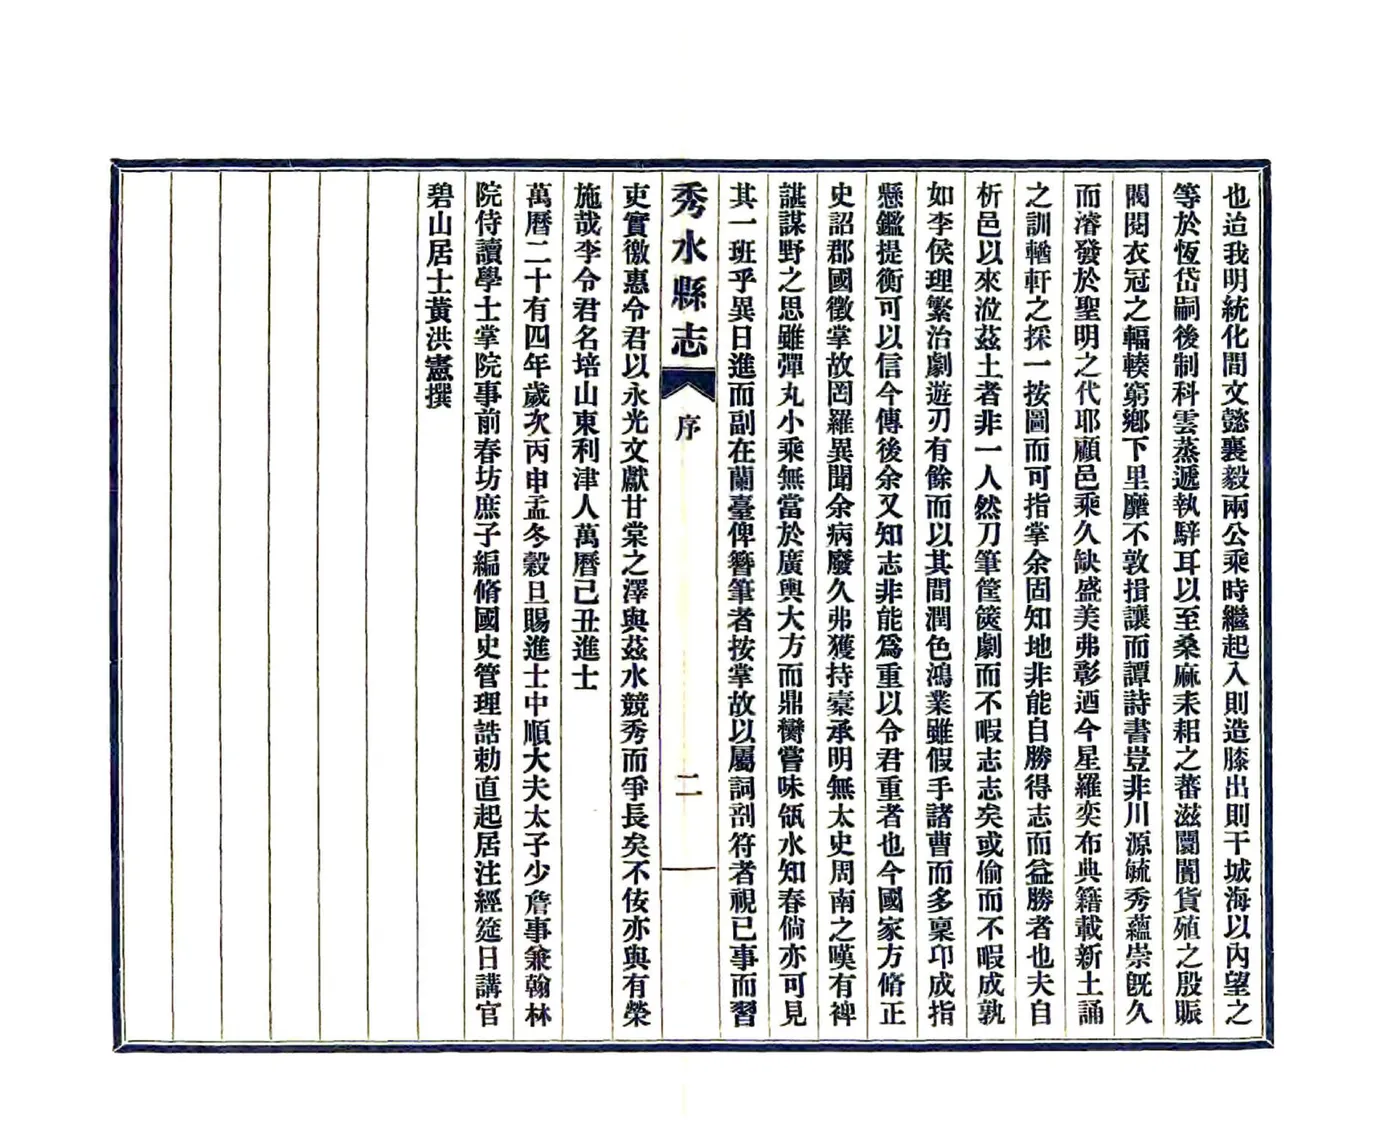 也迨我明統化間文懿襄毅兩公乘時繼起入則造膝出則干城海以內望之
等於恆岱嗣後制科雲蒸遞執騂耳以至桑麻耒耜之蕃滋闤闠貨殖之殷賑
閥閱衣冠之輻輳窮鄉下里靡不敦揖讓而譚詩書豈非川源毓秀蘊崇旣久
而濬發於聖明之代耶顧邑乘久缺盛美弗彰迺今星羅奕布典籍載新土誦
之訓輶軒之採一按圖而可指掌余固知地非能自勝得志而益勝者也夫自
析邑以來涖茲土者非一人然刀筆筐篋劇而不暇志志矣或偷而不暇成孰
如李侯理繁治劇遊刃有餘而以其間潤色鴻業雖假手諸曹而多稟卬成指
懸鑑提衡可以信今傳後余又知志非能爲重以令君重者也今國家方脩正
史詔郡國徵掌故罔羅異聞余病廢久弗獲持橐承明無太史周南之嘆有裨
諶謀野之思雖彈丸小乘無當於廣輿大方而鼎臠嘗味瓴水知春倘亦可見
其一班乎異日進而副在蘭臺俾簪筆者按掌故以屬詞剖符者視已事而習
秀水縣志
序
二
吏實徼惠令君以永光文獻甘棠之澤與茲水競秀而爭長矣不佞亦與有榮
施哉李令君名培山東利津人萬曆己丑進士
萬曆二十有四年歲次丙申孟冬穀旦賜進士中順大夫太子少詹事兼翰林
院侍讀學士掌院事前春坊庶子編脩國史管理誥勅直起居注經筵日講官
碧山居士黃洪憲撰